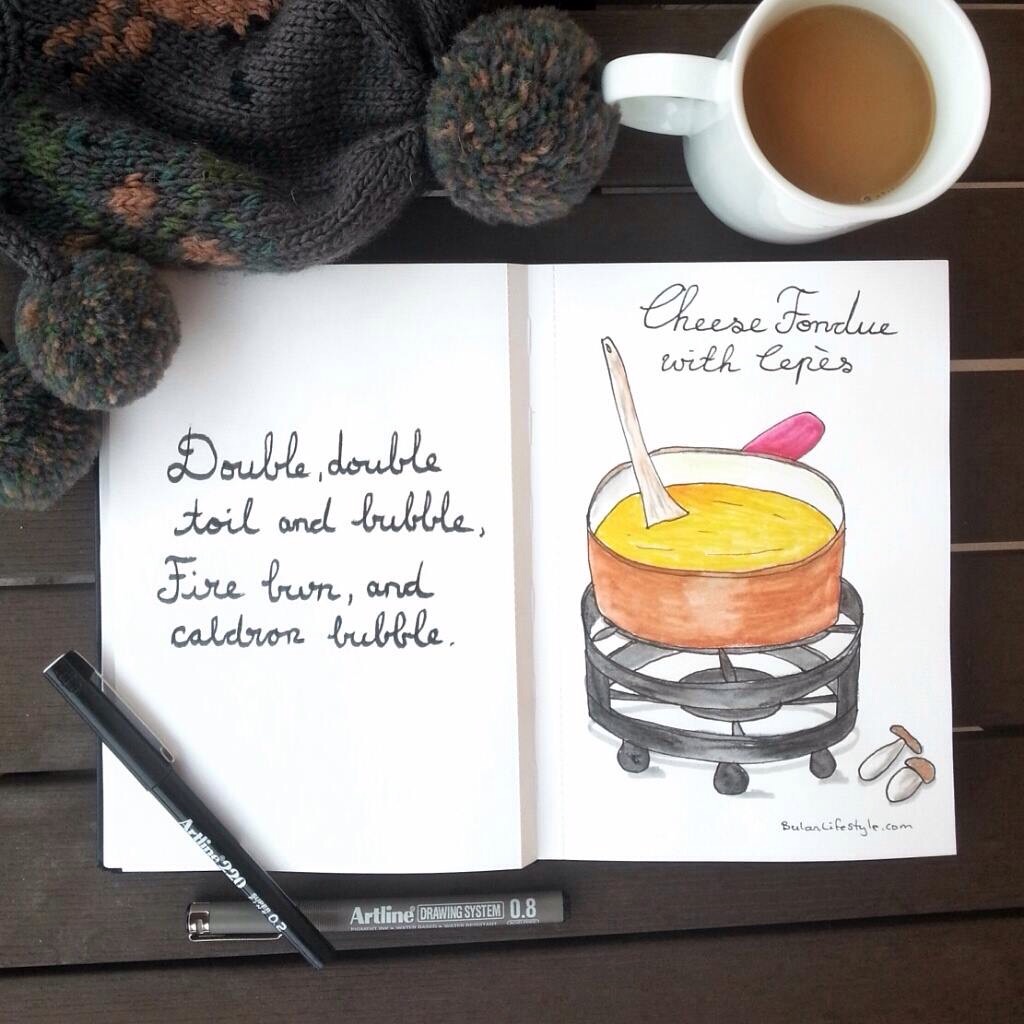 Double, double
toil and bubble,
Fire burn, and
caldron bubble.
Cheese Fondue
with Cepès
BulanLifestyle.com
Artline 220
0.2
Artline DRAWING SYSTEM 0.8
PIGMENT INK • WATER BASED • WATER RESISTANT